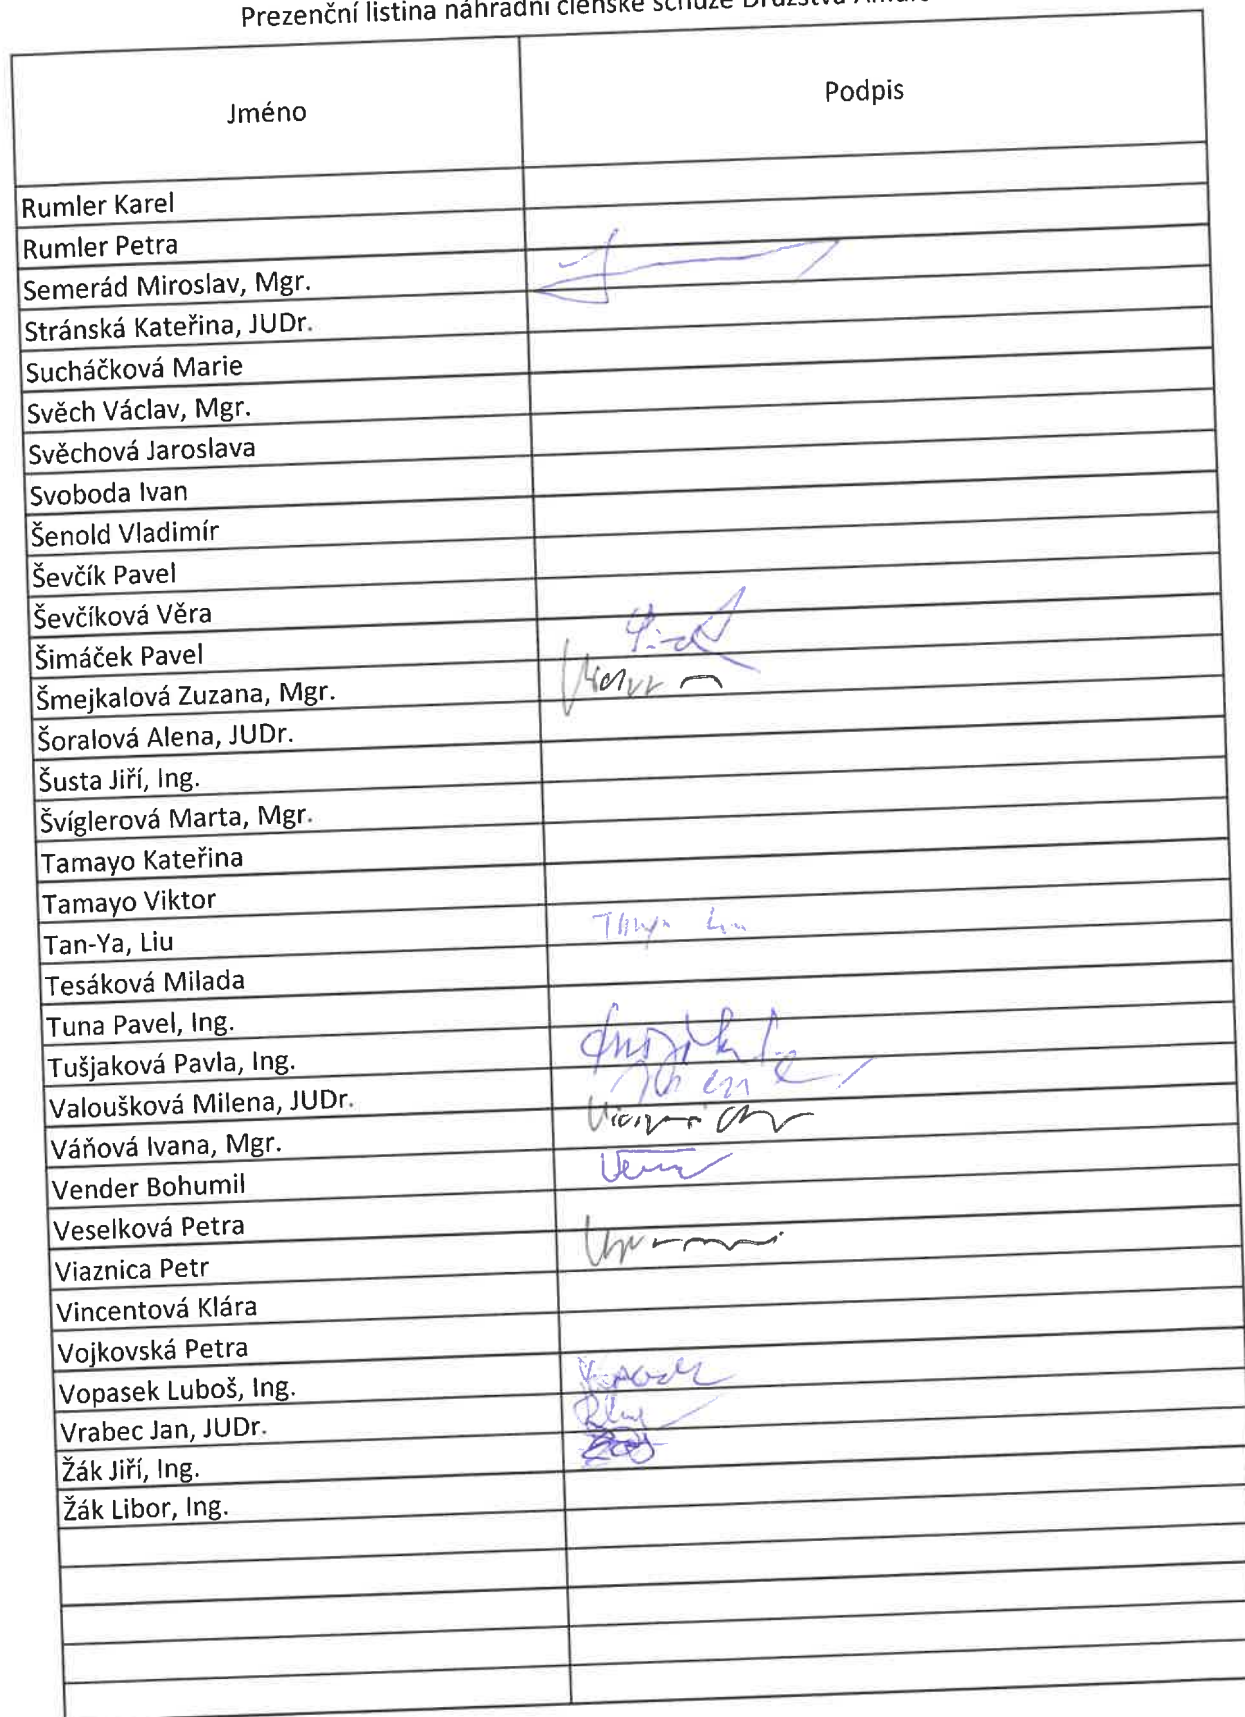 Prezenční listina náhradní členské schůze Družstva
Jméno Podpis
Rumler Karel
Rumler Petra
Semerád Miroslav, Mgr.
Stránská Kateřina, JUDr.
Sucháčková Marie
Svěch Václav, Mgr.
Svěchová Jaroslava
Svoboda Ivan
Šenold Vladimír
Ševčík Pavel
Ševčíková Věra
Šimáček Pavel
Šmejkalová Zuzana, Mgr.
Šoralová Alena, JUDr.
Šusta Jiří, Ing.
Švíglerová Marta, Mgr.
Tamayo Kateřina
Tamayo Viktor
Tan-Ya, Liu
Tesáková Milada
Tuna Pavel, Ing.
Tušjaková Pavla, Ing.
Valoušková Milena, JUDr.
Váňová Ivana, Mgr.
Vender Bohumil
Veselková Petra
Viaznica Petr
Vincentová Klára
Vojkovská Petra
Vopasek Luboš, Ing.
Vrabec Jan, JUDr.
Žák Jiří, Ing.
Žák Libor, Ing.